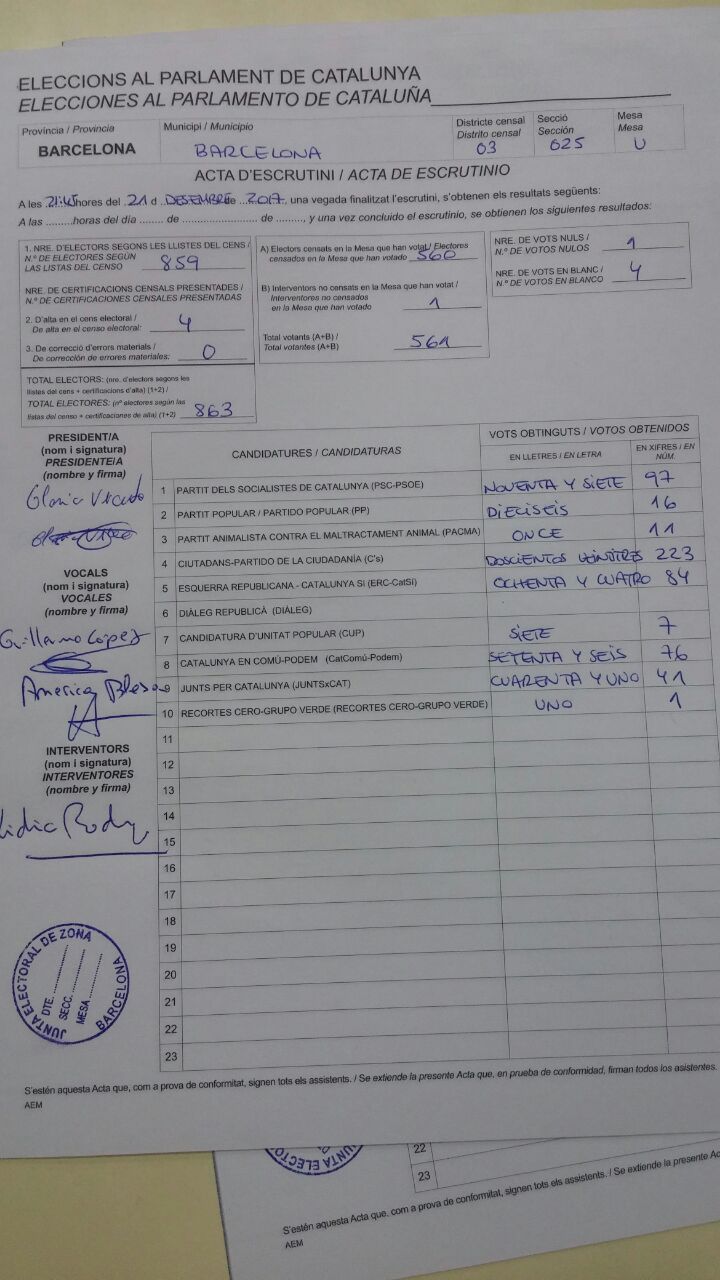 ELECCIONS AL PARLAMENT DE CATALUNYA
ELECCIONES AL PARLAMENTO DE CATALUÑA
Província / Provincia
BARCELONA
Municipi / Municipio
BARCELONA
Districte censal
Distrito censal
03
Secció
Sección
025
Mesa
Mesa
U
ACTA D'ESCRUTINI / ACTA DE ESCRUTINIO
A les 21:45 hores del 21 d DESEMBRE de 2017, una vegada finalitzat l'escrutini, s'obtenen els resultats següents:
A las .........horas del día ........ de ........................ de ........., y una vez concluido el escrutinio, se obtienen los siguientes resultados:
1. NRE. D'ELECTORS SEGONS LES LLISTES DEL CENS /
N.º DE ELECTORES SEGÚN
LAS LISTAS DEL CENSO 859
NRE. DE CERTIFICACIONS CENSALS PRESENTADES /
N.º DE CERTIFICACIONES CENSALES PRESENTADAS
2. D'alta en el cens electoral /
De alta en el censo electoral: 4
3. De correcció d'errors materials /
De corrección de errores materiales: 0
TOTAL ELECTORS: (nre. d'electors segons les
llistes del cens + certificacions d'alta) (1+2) /
TOTAL ELECTORES: (nº electores según las
listas del censo + certificaciones de alta) (1+2) 863
A) Electors censats en la Mesa que han votat / Electores
censados en la Mesa que han votado 560
B) Interventors no censats en la Mesa que han votat /
Interventores no censados
en la Mesa que han votado 1
Total votants (A+B) /
Total votantes (A+B) 561
NRE. DE VOTS NULS /
N.º DE VOTOS NULOS 1
NRE. DE VOTS EN BLANC /
N.º DE VOTOS EN BLANCO 4
PRESIDENT/A
(nom i signatura)
PRESIDENTE/A
(nombre y firma)
Gloria
VOCALS
(nom i signatura)
VOCALES
(nombre y firma)
Guillermo López
America Blesa
INTERVENTORS
(nom i signatura)
INTERVENTORES
(nombre y firma)
CANDIDATURES / CANDIDATURAS
VOTS OBTINGUTS / VOTOS OBTENIDOS
EN LLETRES / EN LETRA
EN XIFRES / EN NÚM.
1 PARTIT DELS SOCIALISTES DE CATALUNYA (PSC-PSOE) NOVENTA Y SIETE 97
2 PARTIT POPULAR / PARTIDO POPULAR (PP) DIECISEIS 16
3 PARTIT ANIMALISTA CONTRA EL MALTRACTAMENT ANIMAL (PACMA) ONCE 11
4 CIUTADANS-PARTIDO DE LA CIUDADANÍA (C's) DOSCIENTOS VEINTITRES 223
5 ESQUERRA REPUBLICANA - CATALUNYA SÍ (ERC-CatSí) OCHENTA Y CUATRO 84
6 DIÀLEG REPUBLICÀ (DIÀLEG)
7 CANDIDATURA D'UNITAT POPULAR (CUP) SIETE 7
8 CATALUNYA EN COMÚ-PODEM (CatComú-Podem) SETENTA Y SEIS 76
9 JUNTS PER CATALUNYA (JUNTSxCAT) CUARENTA Y UNO 41
10 RECORTES CERO-GRUPO VERDE (RECORTES CERO-GRUPO VERDE) UNO 1
11
12
13
14
15
16
17
18
19
20
21
22
23
JUNTA ELECTORAL DE ZONA
DTE. ............
SECC. ............
MESA ............
BARCELONA
S'estén aquesta Acta que, com a prova de conformitat, signen tots els assistents. / Se extiende la presente Acta que, en prueba de conformidad, firman todos los asistentes.
AEM
JUNTA ELECTO
22
23
S'estén aquesta Acta que, com a prova de conformitat, signen tots els assistents. / Se extiende la presente Ac
AEM